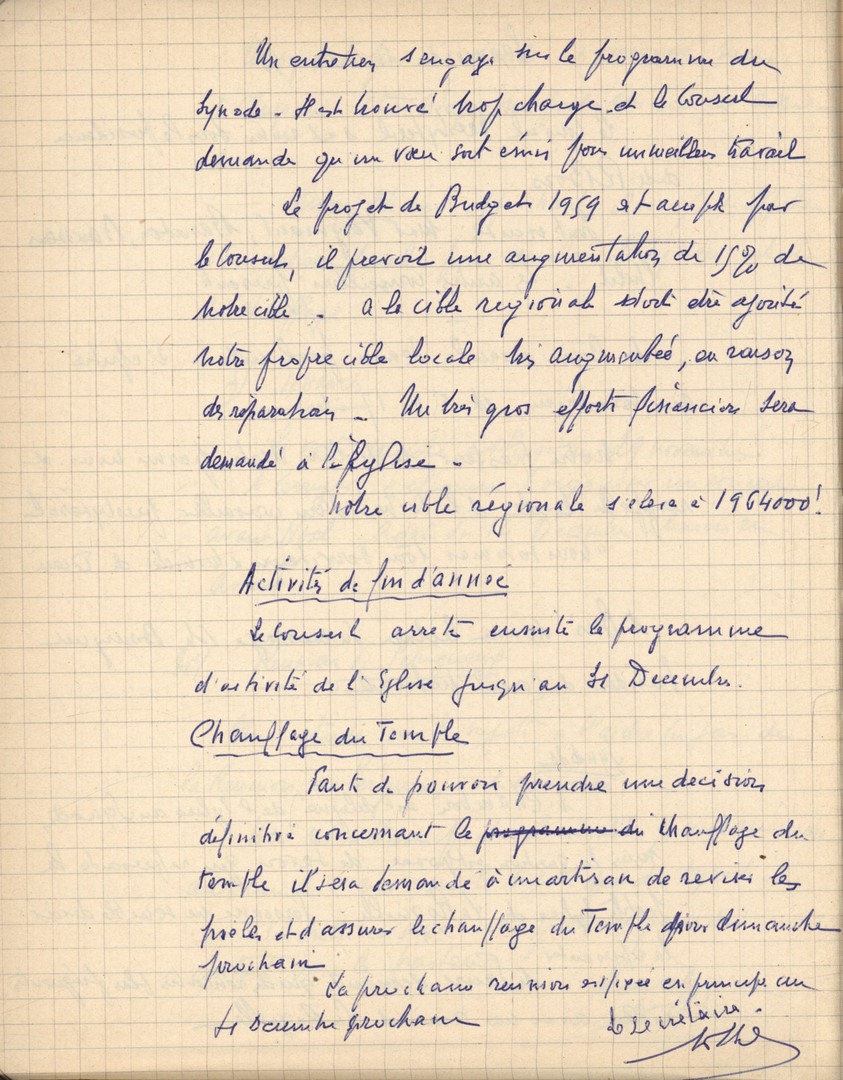 Un entretien s'engage sur le programme du
Synode - Il est trouvé trop chargé et le Conseil
demande qu'un vœu soit émis pour un meilleur travail
Le projet de Budget 1959 est accepté par
le Conseil, il prevoit une augmentation de 15% de
notre cible - a la cible regionale doit être ajouté
notre propre cible locale très augmentée, en raison
des réparations - Un très gros effort financier sera
demandé à l'Eglise -
Notre cible régionale s'eleve à 1964000!
Activités de fin d'année
Le Conseil arrete ensuite le programme
d'activité de l'Eglise jusqu'au 31 Decembre.
Chauffage du Temple
Faute de pouvoir prendre une decision
définitive concernant le programme du chauffage du
temple il sera demandé à un artisan de reviser les
poêles et d'assurer le chauffage du Temple pour dimanche
prochain
La prochaine reunion est fixée en principe au
Decembre prochain
Le secrétaire.